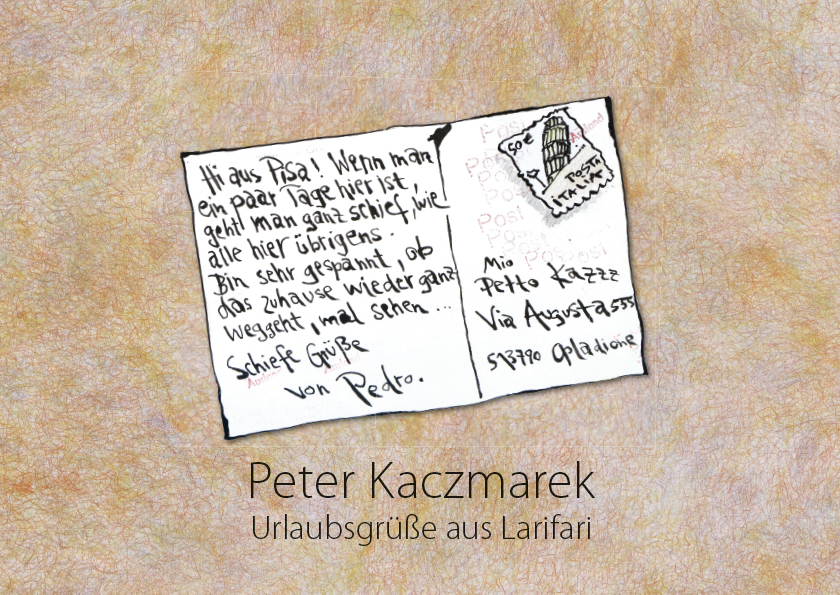 Hi aus Pisa! Wenn man
ein paar Tage hier ist,
geht man ganz schief, wie
alle hier übrigens.
Bin sehr gespannt, ob
das zuhause wieder ganz
weggeht, mal sehen...
Schiefe Grüße
von Pedro.
50€
POSTA
ITALIA
Mio
Petto Kazzz
Via Augusta 555
513790 Opladione
Peter Kaczmarek
Urlaubsgrüße aus Larifari